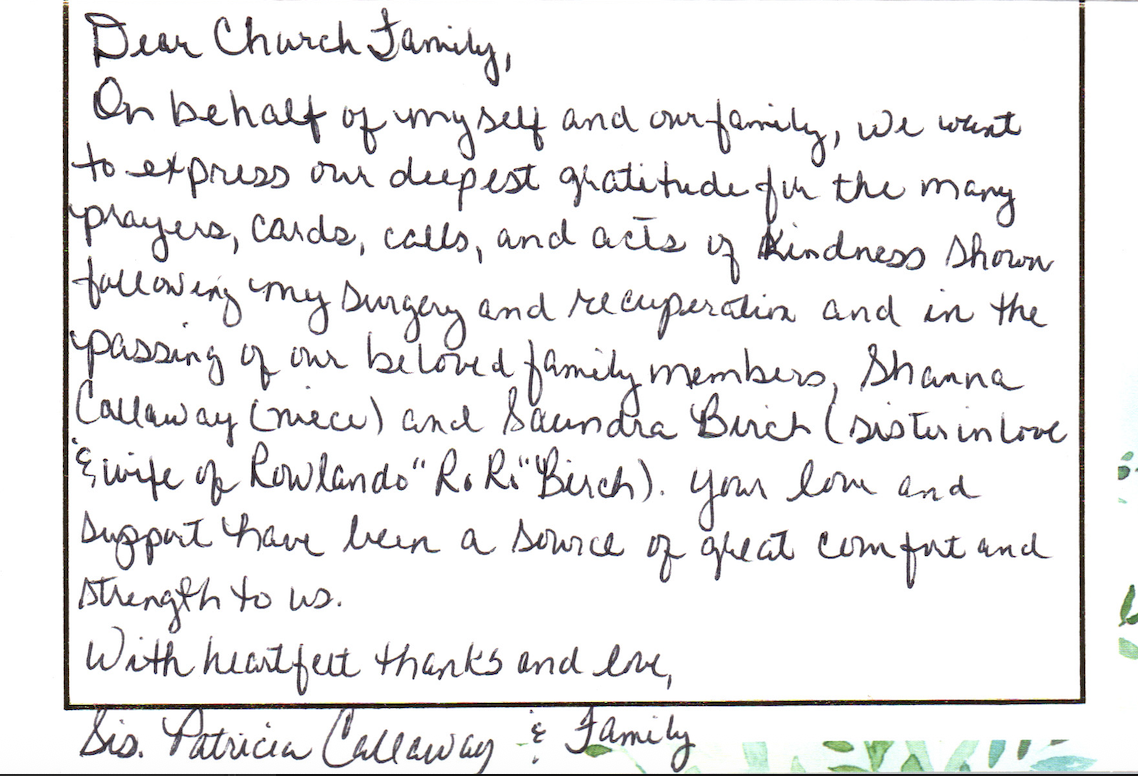 Dear Church Family,
On behalf of myself and our family, we want
to express our deepest gratitude for the many
prayers, cards, calls, and acts of kindness shown
following my surgery and recuperation and in the
passing of our beloved family members, Shanna
Callaway (niece) and Saundra Birch (sister in love
& wife of Rowlando "Ro Ro" Birch). Your love and
support have been a source of great comfort and
strength to us.
With heartfelt thanks and love,
Sis. Patricia Callaway & Family